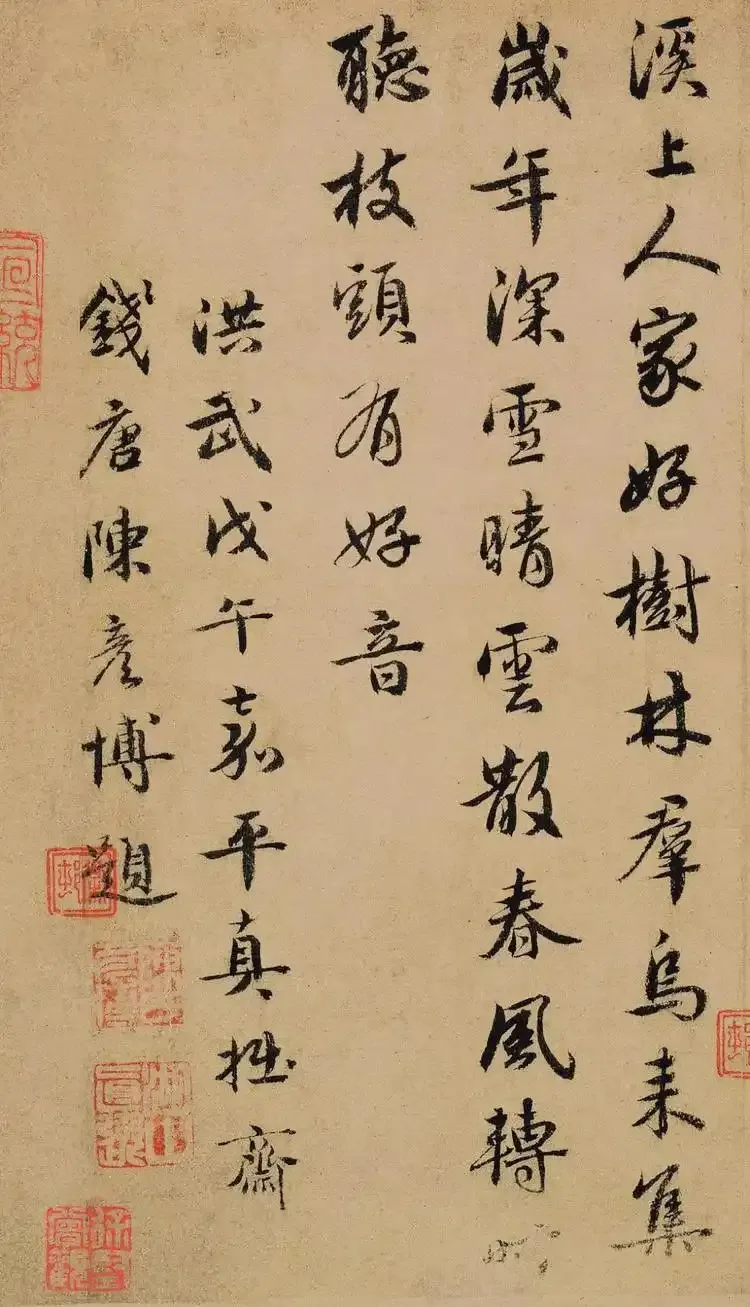 溪上人家好樹林羣烏来集
歲年深雪晴雲散春風轉
聽枝頭有好音
洪武戊午嘉平真拙齋
錢唐陳彦博題